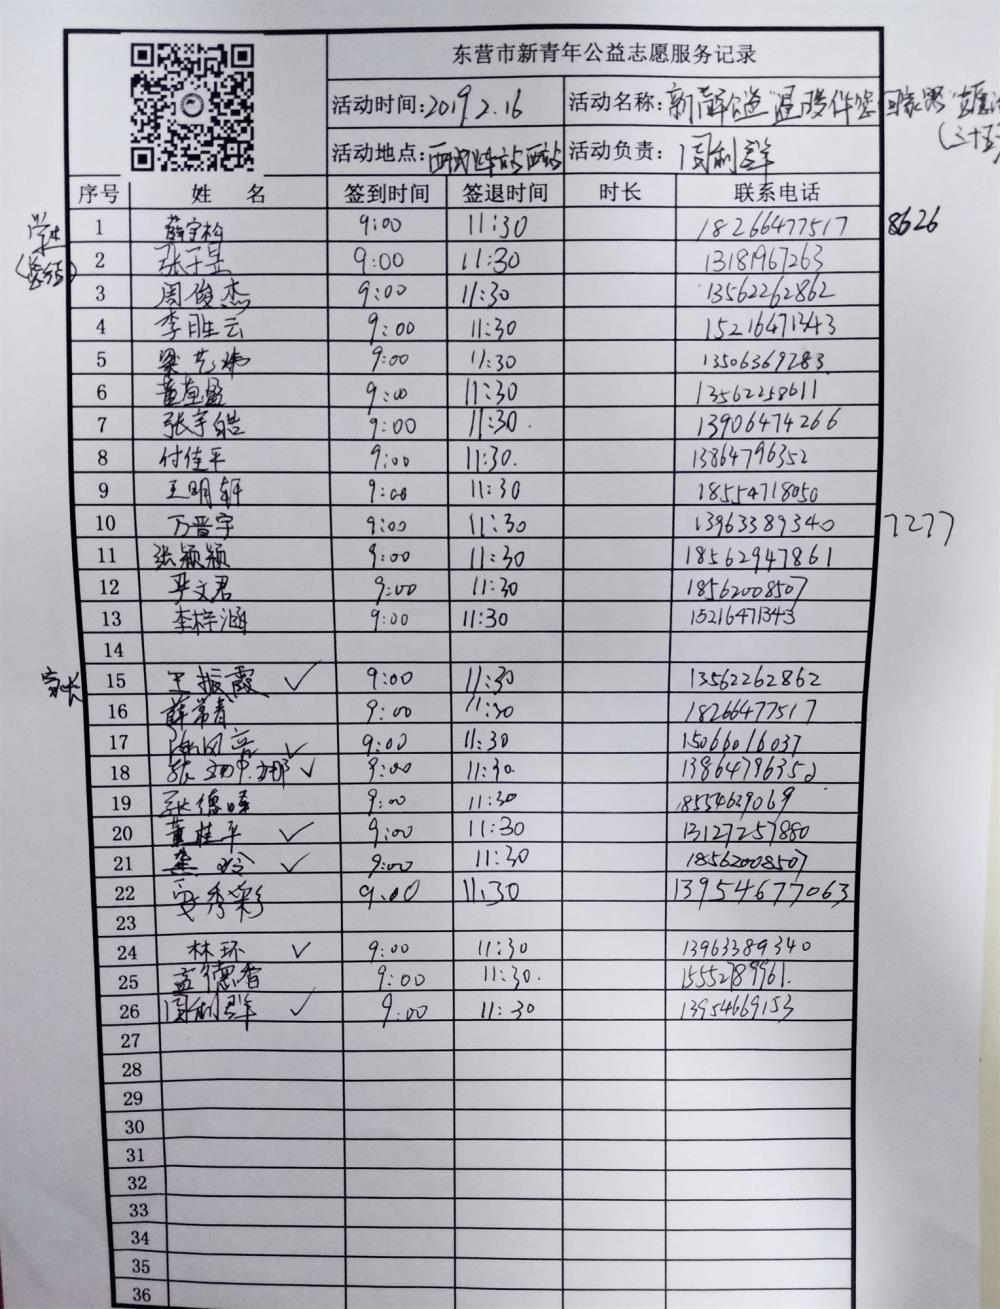 东营市新青年公益志愿服务记录
活动时间:2019.2.16 活动名称:
活动地点: 活动负责:周利群
序号 姓 名 签到时间 签退时间 时长 联系电话
学生 1 薛宇松 9:00 11:30 18266477517 8626
2 张子昱 9:00 11:30 13181967263
3 周俊杰 9:00 11:30 13562262862
4 李胜云 9:00 11:30 15216471343
5 梁艺 9:00 11:30 13506369283
6 董 9:00 11:30 13562258611
7 张宇皓 9:00 11:30. 13906474266
8 付佳平 9:00 11:30. 13864796352
9 王明轩 9:00 11:30 18554718050
10 万晋宇 9:00 11:30 13963389340 7277
11 张颖颖 9:00 11:30 18562947861
12 尹文君 9:00 11:30 18562008507
13 李梓涵 9:00 11:30 15216471343
14
家长 15 王振霞 ✓ 9:00 11:30 13562262862
16 薛常青 9:00 11:30 18266477517
17 ✓ 9:00 11:30 15066016037
18 张 娜 ✓ 9:00 11:30. 13864796352
19 张德峰 9:00 11:30 18554629069
20 董桂平 ✓ 9:00 11:30 13127257880
21 玲 ✓ 9:00 11:30 18562008507
22 安秀彩 9:00 11:30 13954677063
23
24 林环 ✓ 9:00 11:30 13963389340
25 孟德香 9:00 11:30. 15552789961.
26 周利群 ✓ 9:00 11:30 13954669153
27
28
29
30
31
32
33
34
35
36